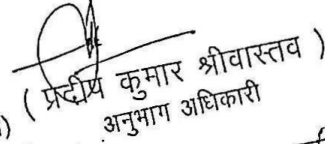 ( प्रदीप कुमार श्रीवास्तव )
अनुभाग अधिकारी